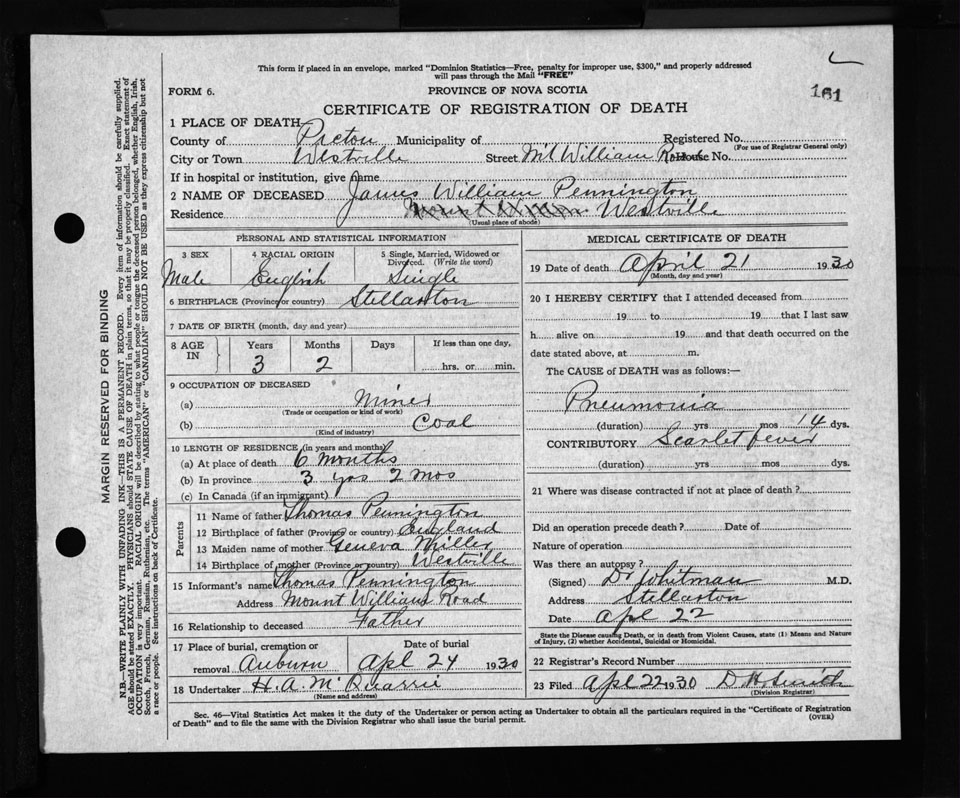 This form if placed in an envelope, marked "Dominion Statistics—Free, penalty for improper use, $300," and properly addressed
will pass through the Mail "FREE"
FORM 6.
PROVINCE OF NOVA SCOTIA
161
CERTIFICATE OF REGISTRATION OF DEATH
1 PLACE OF DEATH
County of Pictou Municipality of Registered No.
(For use of Registrar General only)
City or Town Westville Street Mt William Road House No.
If in hospital or institution, give name
2 NAME OF DECEASED James William Pennington
Residence Westville
(Usual place of abode)
PERSONAL AND STATISTICAL INFORMATION
3 SEX 4 RACIAL ORIGIN 5 Single, Married, Widowed or Divorced. (Write the word)
Male English Single
6 BIRTHPLACE (Province or country) Stellarton
7 DATE OF BIRTH (month, day and year)
8 AGE IN Years Months Days If less than one day,
3 2 hrs. or min.
9 OCCUPATION OF DECEASED
(a) Miner
(Trade or occupation or kind of work)
(b) Coal
(Kind of industry)
10 LENGTH OF RESIDENCE (in years and months)
(a) At place of death 6 months
(b) In province 3 yrs 2 mos
(c) In Canada (if an immigrant)
Parents
11 Name of father Thomas Pennington
12 Birthplace of father (Province or country) England
13 Maiden name of mother Geneva Miller
14 Birthplace of mother (Province or country) Westville
15 Informant's name Thomas Pennington
Address Mount William Road
16 Relationship to deceased Father
17 Place of burial, cremation or Date of burial
removal Auburn Apl 24 1930
18 Undertaker H. A. McQuarrie
(Name and address)
MEDICAL CERTIFICATE OF DEATH
19 Date of death April 21 1930
(Month, day and year)
20 I HEREBY CERTIFY that I attended deceased from
19 to 19 that I last saw
h alive on 19 and that death occurred on the
date stated above, at m.
The CAUSE of DEATH was as follows:—
Pneumonia
(duration) yrs mos 14 dys.
CONTRIBUTORY Scarlet fever
(duration) yrs mos dys.
21 Where was disease contracted if not at place of death?
Did an operation precede death? Date of
Nature of operation
Was there an autopsy?
(Signed) Dr Whitman M.D.
Address Stellarton
Date Apl 22
State the Disease causing Death, or in death from Violent Causes, state (1) Means and Nature
of Injury, (2) whether Accidental, Suicidal or Homicidal.
22 Registrar's Record Number
23 Filed Apl 22 1930 D H Smith
(Division Registrar)
Sec. 46—Vital Statistics Act makes it the duty of the Undertaker or person acting as Undertaker to obtain all the particulars required in the "Certificate of Registration
of Death" and to file the same with the Division Registrar who shall issue the burial permit.
(OVER)
MARGIN RESERVED FOR BINDING
N.B.—WRITE PLAINLY WITH UNFADING INK—THIS IS A PERMANENT RECORD. Every item of information should be carefully supplied.
AGE should be stated EXACTLY. PHYSICIANS should STATE CAUSE OF DEATH in plain terms, so that it may be properly classified. Exact statement of
OCCUPATION is very important. RACIAL ORIGIN will be described by stating to what people or tongue the deceased person belonged, whether English, Irish,
Scotch, French, German, Russian, Ruthenian, etc. The terms "AMERICAN" or "CANADIAN" SHOULD NOT BE USED as they express citizenship but not
a race or people. See instructions on back of Certificate.